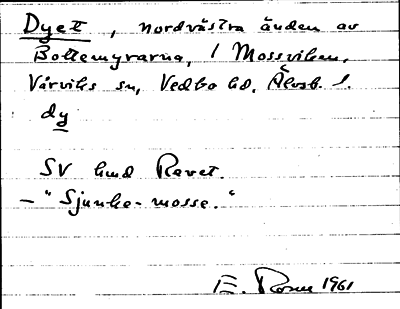 Dyett, nordvästra änden av
Bottemyrarna, i Mossviken,
Vårviks sn, Vedbo hd, Älvsb. l.
dy
SV hmd Revet.
– "Sjunke-mosse."
E. 1961